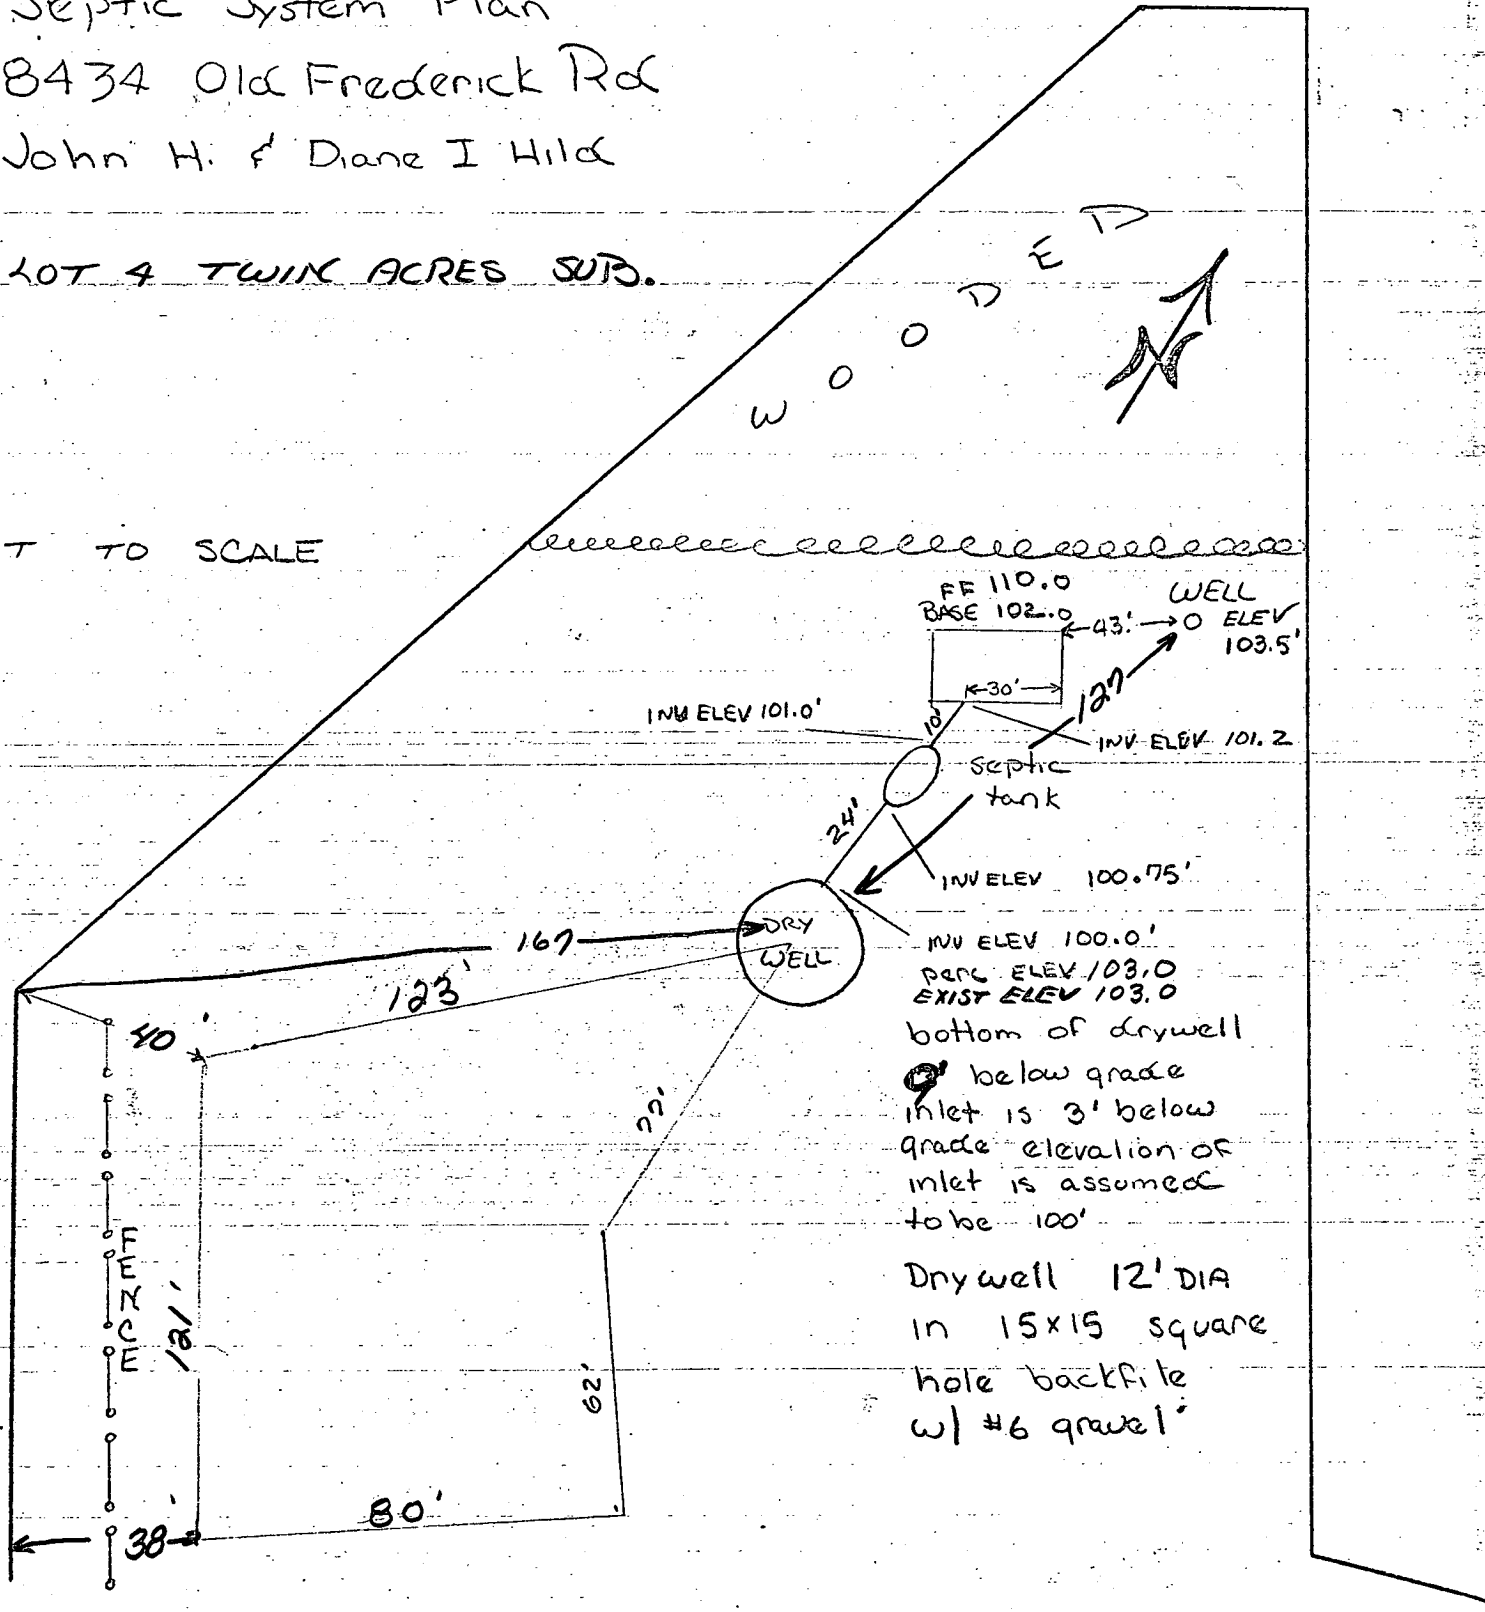 Septic System Plan
8434 Old Frederick Rd
John H. & Diane I Hild
LOT 4 TWIN ACRES SUB.
WOODED
N
T TO SCALE
FF 110.0
BASE 102.0
WELL
ELEV
103.5'
43'
30'
127
INV ELEV 101.0'
10'
INV ELEV 101.2
septic
tank
24'
INV ELEV 100.75'
DRY
WELL
167
123'
40'
INV ELEV 100.0'
perc ELEV 103.0
EXIST ELEV 103.0
bottom of drywell
9' below grade
inlet is 3' below
grade elevation of
inlet is assumed
to be 100'
Drywell 12' DIA
in 15x15 square
hole backfile
w/ #6 gravel
77'
FENCE
121'
62'
80'
38'